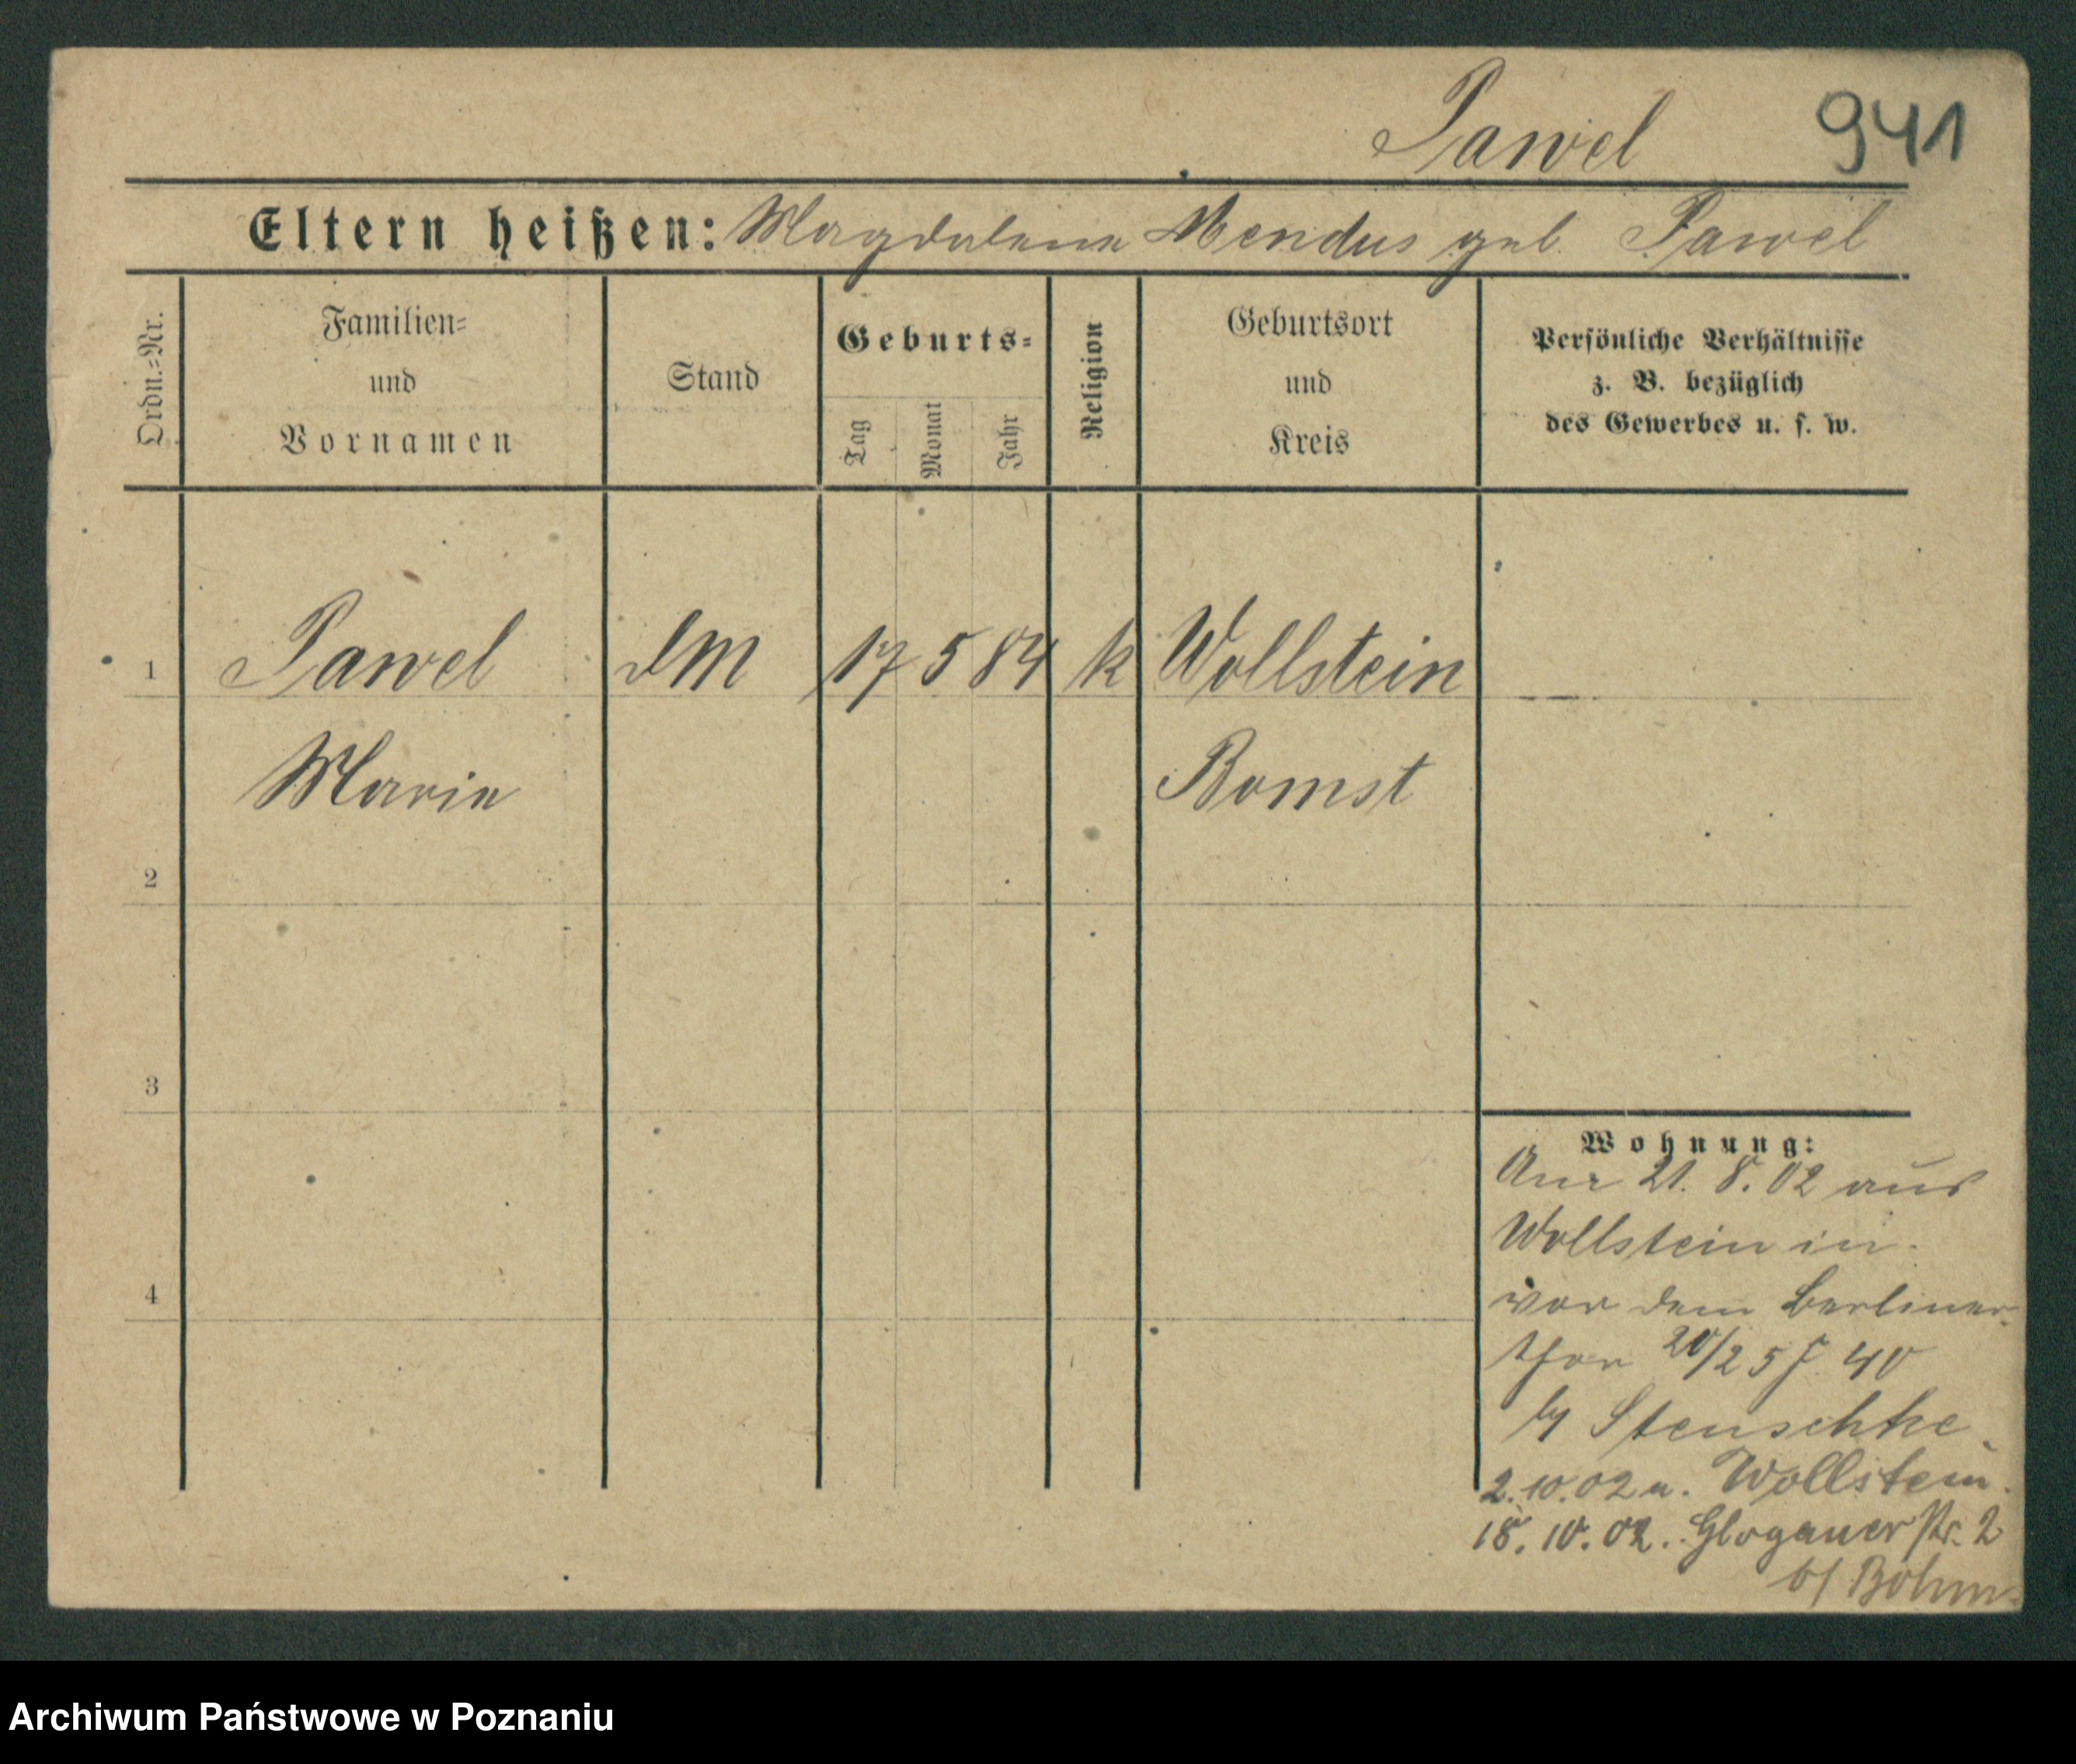 Pawel 941
Eltern heißen: Magdalena Mendus geb. Pawel
Ordn.=Nr.
Familien=
und
Vornamen
Stand
Geburts=
Tag
Monat
Jahr
Religion
Geburtsort
und
Kreis
Persönliche Verhältnisse
z. B. bezüglich
des Gewerbes u. s. w.
1 Pawel dM 17 5 84 k Wollstein —
Marie Bomst
2
3
4
Wohnung:
21. 8. 02 aus
Wollstein in
vor dem Berliner
Thor 20/25 J 40
b/ Stenschke
2. 10. 02 n. Wollstein.
18. 10. 02. Glogauerstr. 2
b/ Böhm
Archiwum Państwowe w Poznaniu